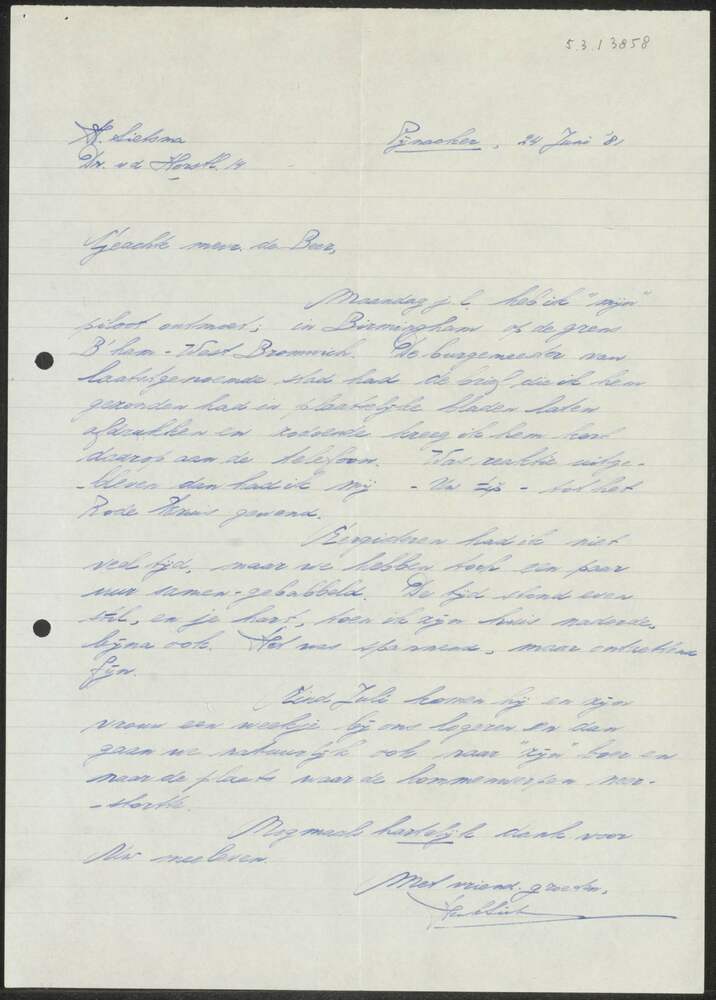 5.3.13858
Pijnacker, 24 Juni '81
H. Sietsma
Dr. v.d. Horstl. 14
Geachte mevr. de Beer,
Maandag j.l. heb ik "mijn"
piloot ontmoet; in Birmingham op de grens
B'ham - West Bromwich. De burgemeester van
laatstgenoemde stad had de brief die ik hem
gezonden had in plaatselijke bladen laten
afdrukken en zodoende kreeg ik hem kort
daarop aan de telefoon. Was reaktie uitge-
-bleven dan had ik mij - Uw tip - tot het
Rode Kruis gewend.
Eergisteren had ik niet
veel tijd, maar we hebben toch een paar
uur samen-gebabbeld. De tijd stond even
stil, en je hart, toen ik zijn huis naderde,
bijna ook. Het was spannend, maar ontzettend
fijn.
Eind Juli komen hij en zijn
vrouw een weekje bij ons logeren en dan
gaan we natuurlijk ook naar "zijn" boer en
naar de plaats waar de bommenwerper neer-
-stortte.
Nogmaals hartelijk dank voor
Uw meeleven.
Met vriend. groeten,